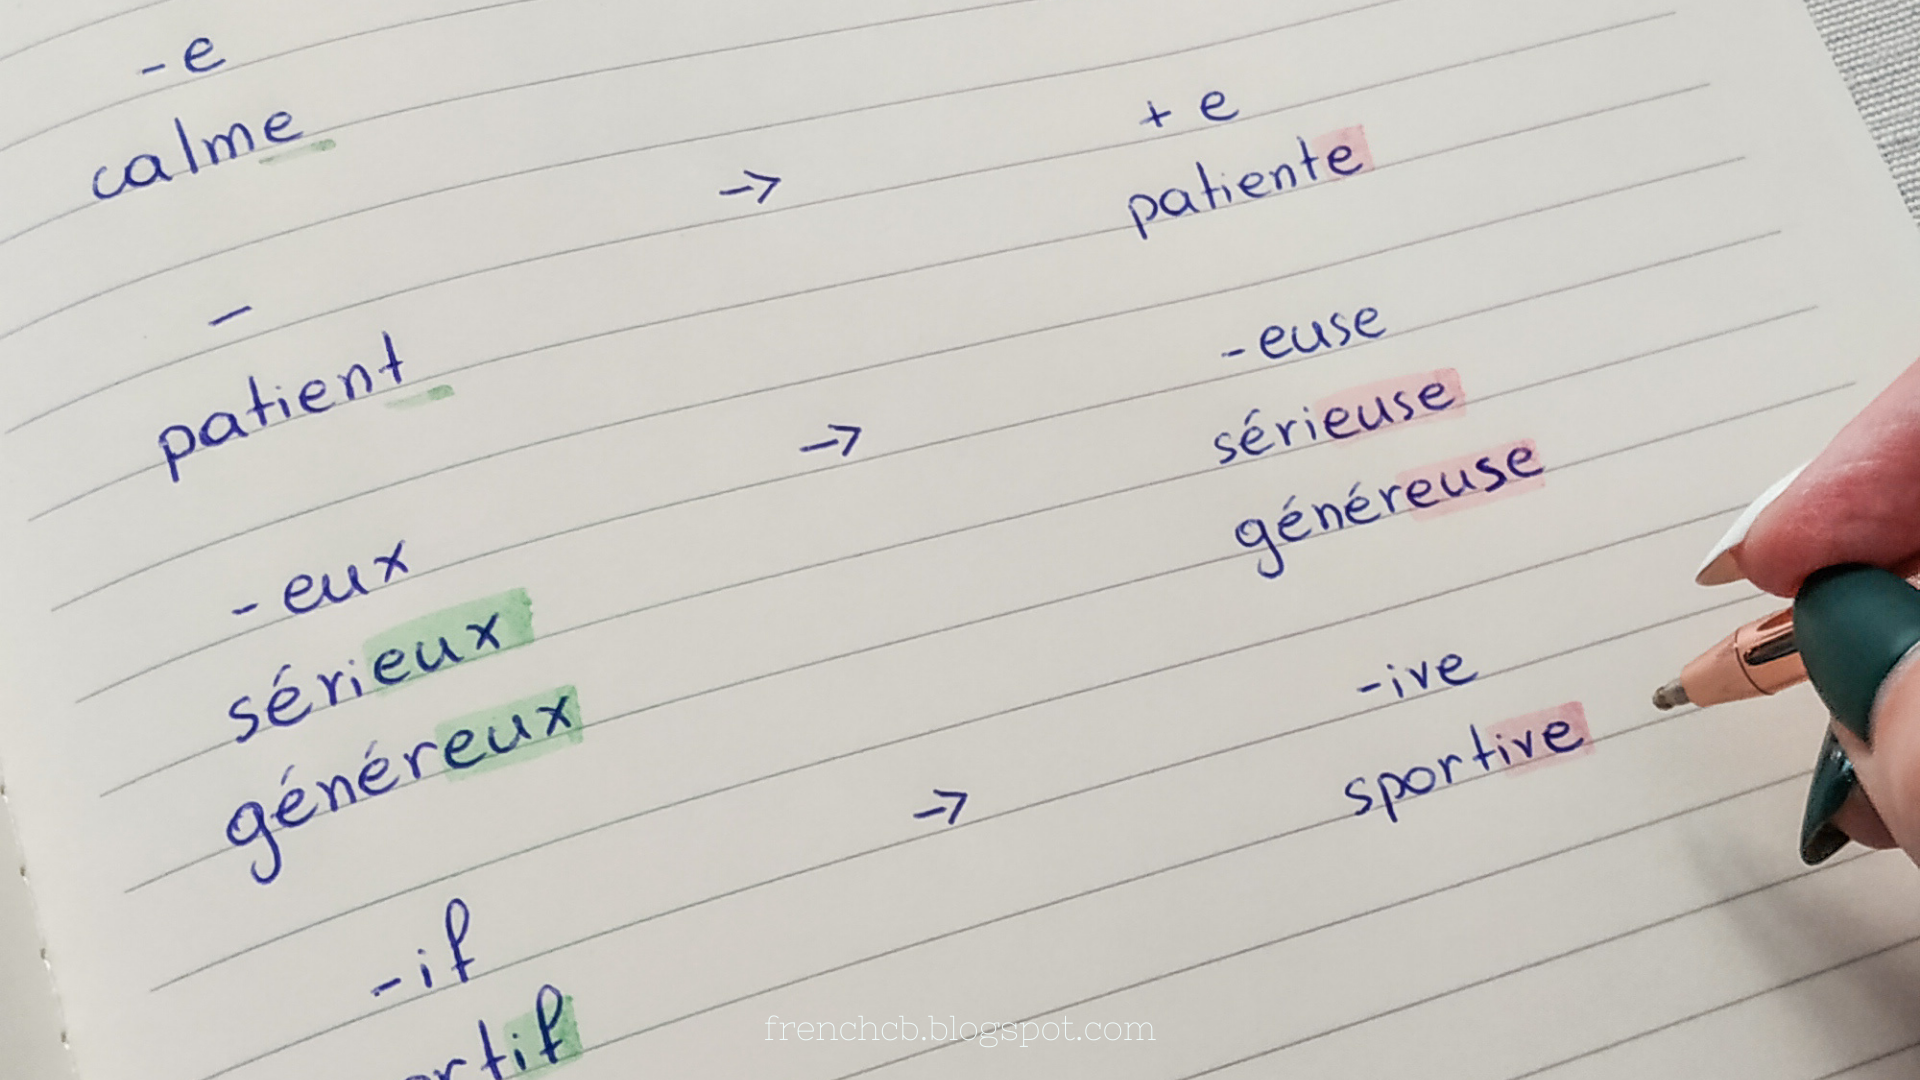 -e
calme
+ e
→
patiente
-
patient
-euse
→
sérieuse
généreuse
-eux
sérieux
généreux
-ive
→
sportive
-if
frenchcb.blogspot.com